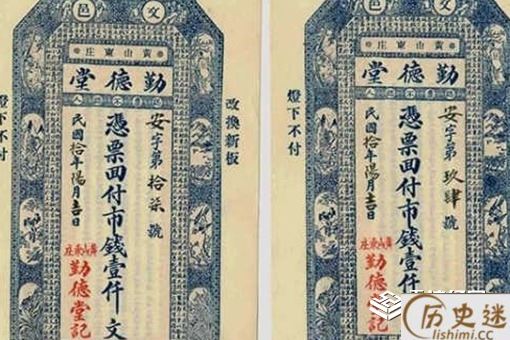 文邑
黃山東庄
勤德堂
認票不認人
改換新板
安字第拾柒號
憑票回付市錢壹仟文
民國拾年陽月吉日
黃山東庄
勤德堂記
燈下不付
文邑
黃山東庄
勤德堂
認票不認人
安字第玖肆號
憑票回付市錢壹仟
民國拾年陽月吉日
黃山東庄
勤德堂記
燈下不付
历史迷
lishimi.cc